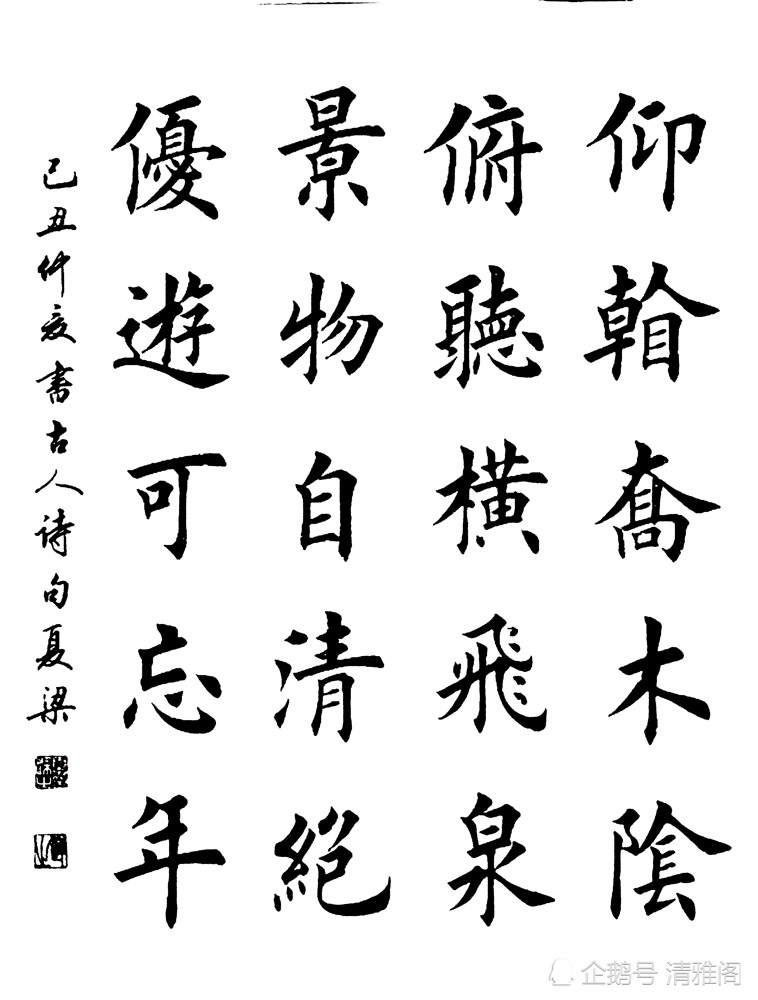 仰看喬木陰
俯聽橫飛泉
景物自清絕
優遊可忘年
己丑仲夏書古人诗句夏梁
企鹅号 清雅阁